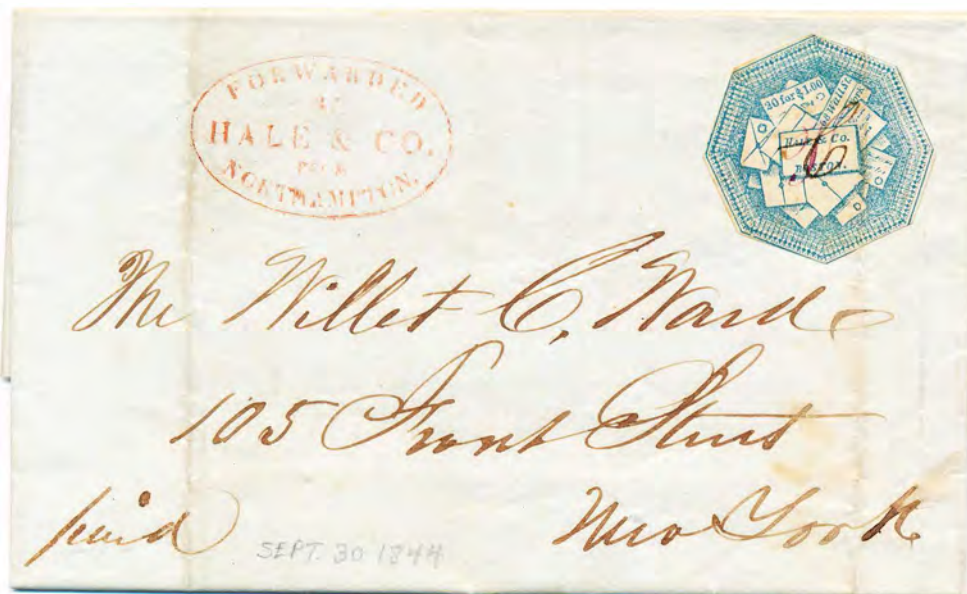 FORWARDED
BY
HALE & CO.
FROM
NORTHAMPTON.
20 for $1.00
Wall St.
Hale & Co.
BOSTON.
Mr Willet C. Ward
105 Front Street
paid
New York
SEPT. 30 1844